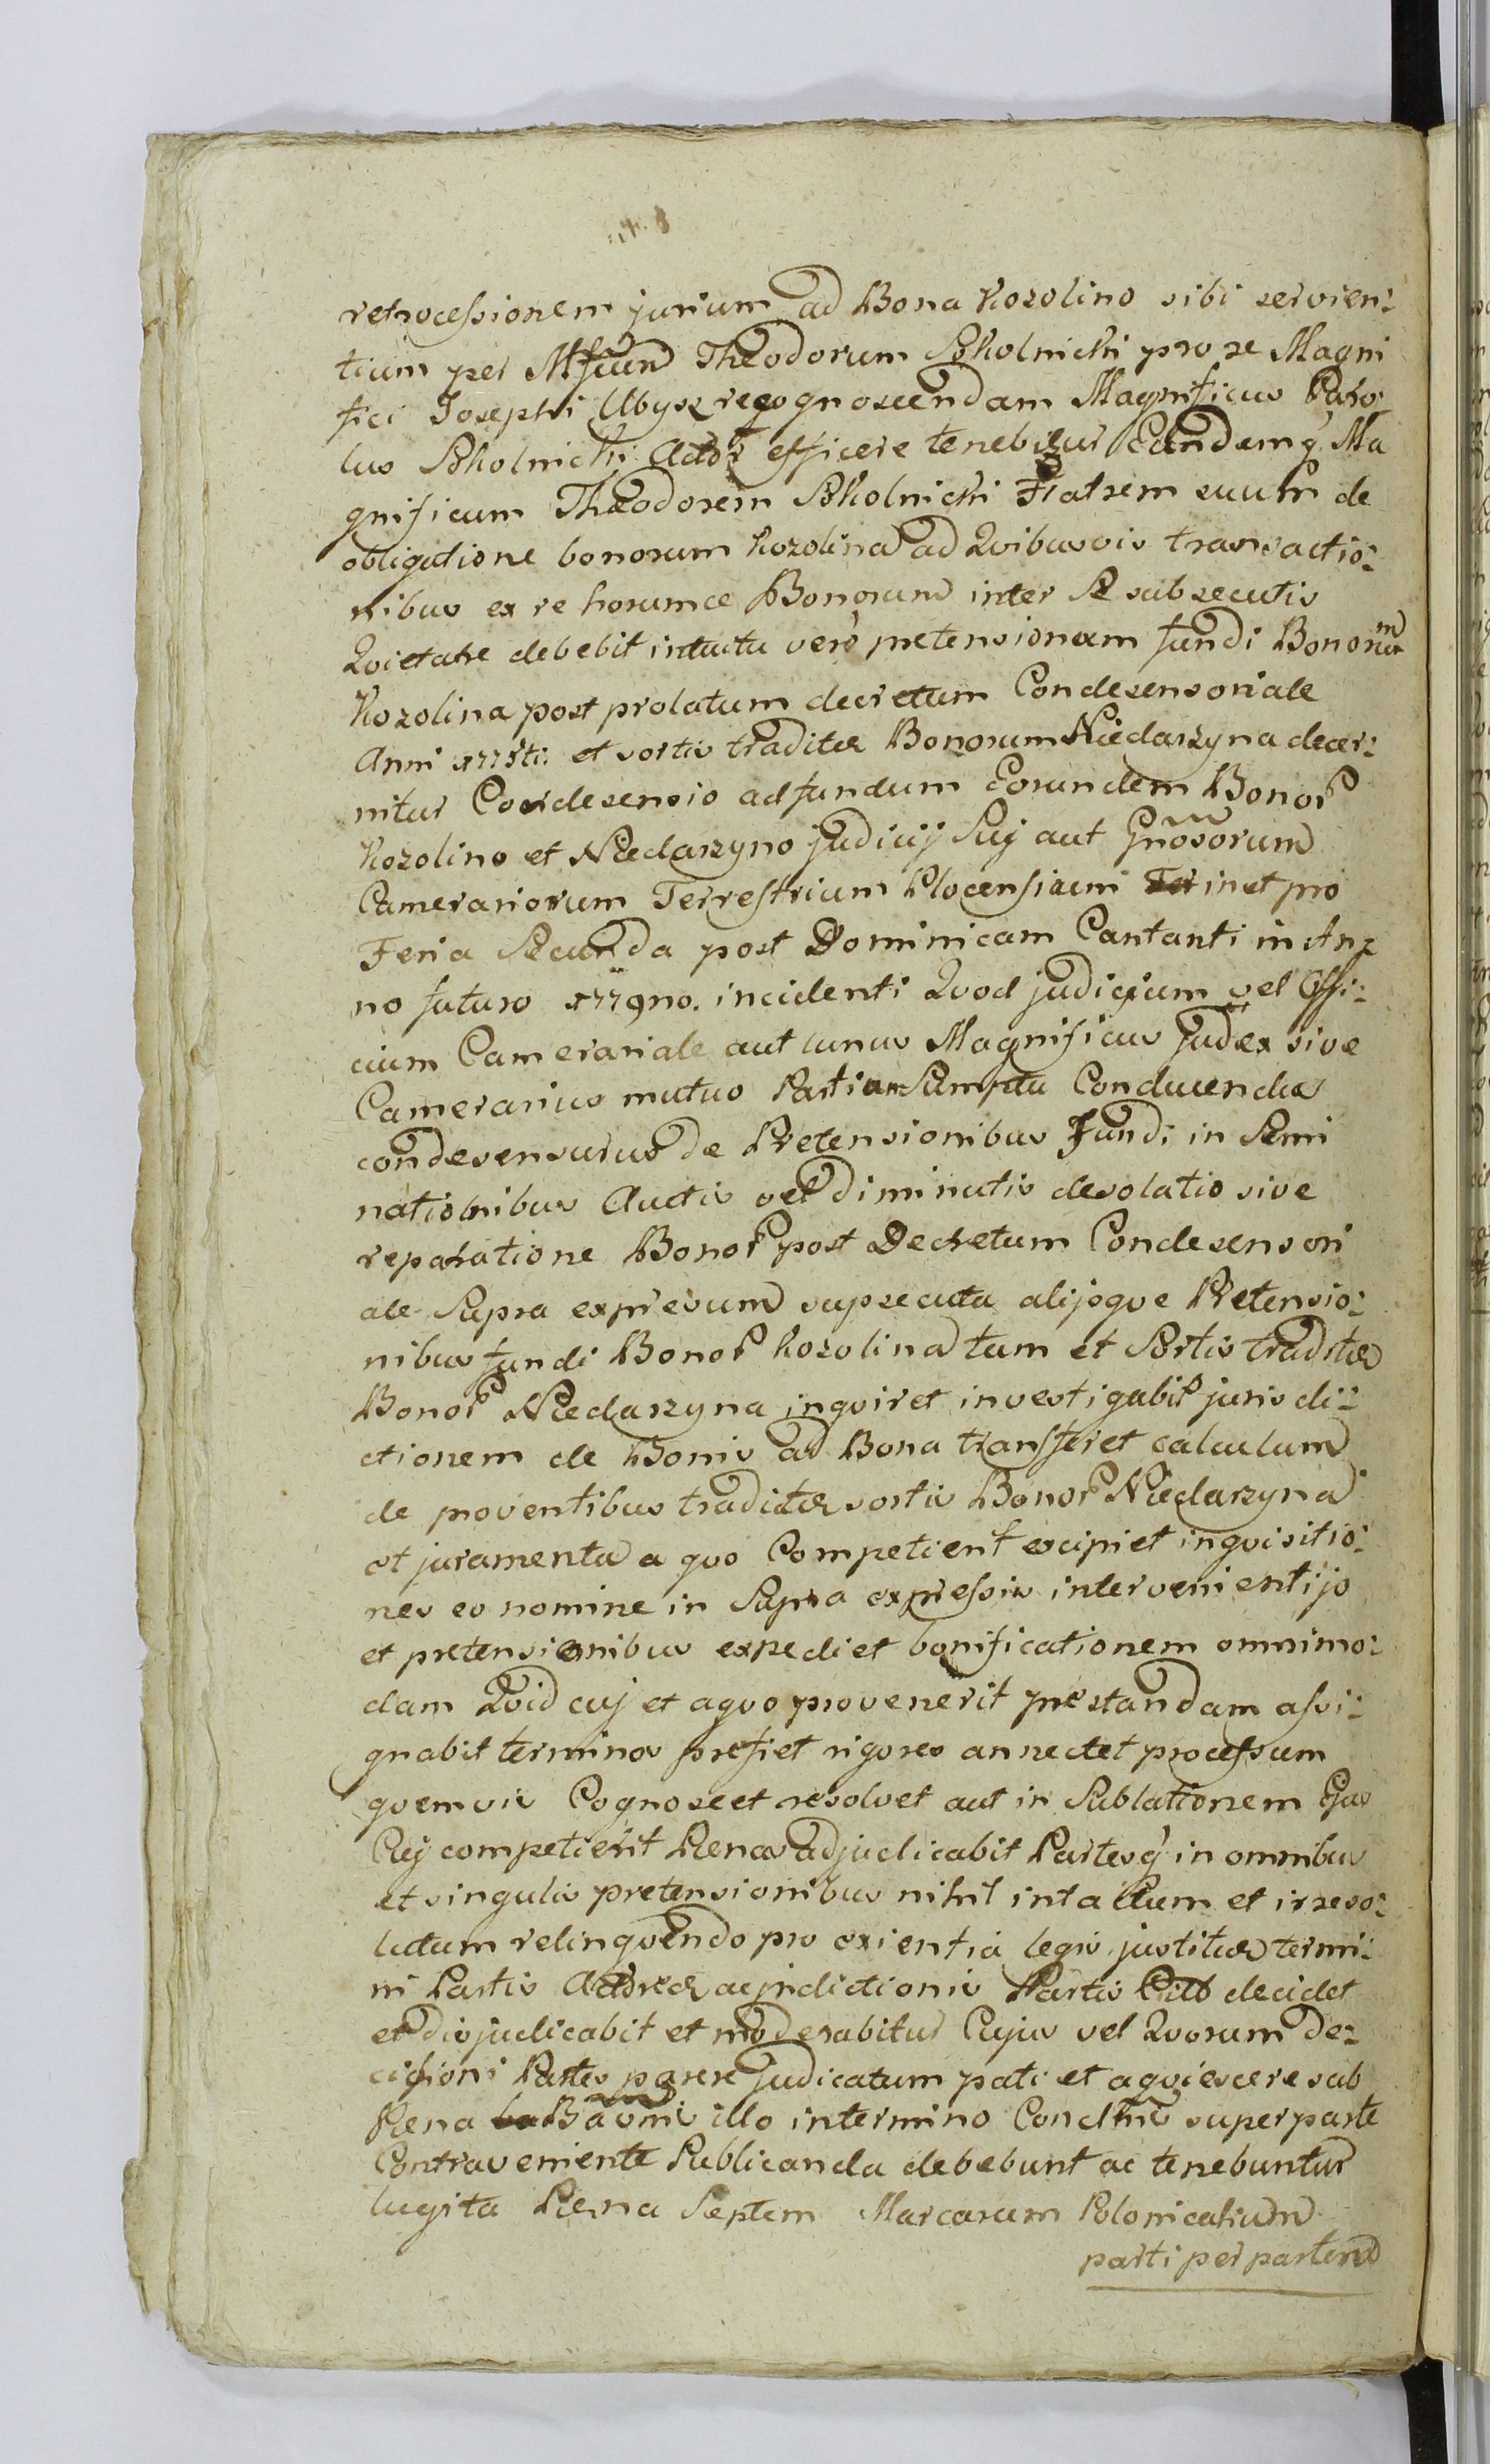 retrocessionem jurium ad Bona Kozolino sibi servien:
tium per Mfcum Theodorum Skolnicki pro se Magni
fici Josephi Ubysz recognoscendam Magnificus Caro:
lus Skolnicki Actor efficere tenebitur Eundemq Ma
gnificum Theodorem Skolnicki Fratrem suum de
obligatione bonorum Kozolina ad Quibusvis transactio:
nibus ex re horumce Bonorum inter Se subsecutis
Quietare debebit intuitu vero pretensionem fundi Bonorum
Kozolina post prolatum decretum Condesensoriale
Anni 1778ti: et sortis traditæ Bonorum Niedarzyna decer:
nitur Condesensio ad fundum Eorundem Bonor
Kozolino et Niedarzyno judicij Suj aut Gnosorum
Camerariorum Terrestrium Plocensium in et pro
Feria Secunda post Dominicam Cantanti in An:
no futuro 1779no. incidenti Quod judicium vel Offi:
cium Camerariale aut unus Magnificus Judex sive
Camerarius mutuo Partium Sumptu Conducendus
condesensurus de Pretensionibus Fundi in Semi
nationibus Auctis vel diminutis desolatio sive
reparatione Bonor post Decretum Condesensori
ale Supra expresum supsecuta alijsque Pretensio:
nibus fundi Bonor Kozolina tum et Sortis traditæ
Bonor Niedarzyna inquiret investigabit jurisdi:
ctionem de Bonis ad Bona transferet calculum
de proventibus traditæ sortis Bonor Niedarzyna
et juramenta a quo Competient excipiet inquisitio:
nes eo nomine in Supra expressis intervenientijs
et pretensionibus expediet bonificationem omnimo:
dam Quid cuj et aquo provenerit præstandam assi:
gnabit terminos prefiet rigores annectet processum
quemvis Cognoscet resolvet aut in Sublationem Ejus
Cuj competierit Penas adjudicabit Partesq in omnibus
et singulis pretensionibus nihil intactum et irreso:
lutum relinquendo pro exientia legis justitiæ termi:
ni Partis Actoreæ acjndictionis Partis decidet
et disjudicabit et moderabitur Cujus vel Quorum de:
cisioni Partes parere Judicatum pati et aquiescere sub
Pena illo intermino super parte
Contraveniente Publicanda debebunt ac tenebuntur
lugita Pena Septem Marcarum Polonicalium
parti per partem